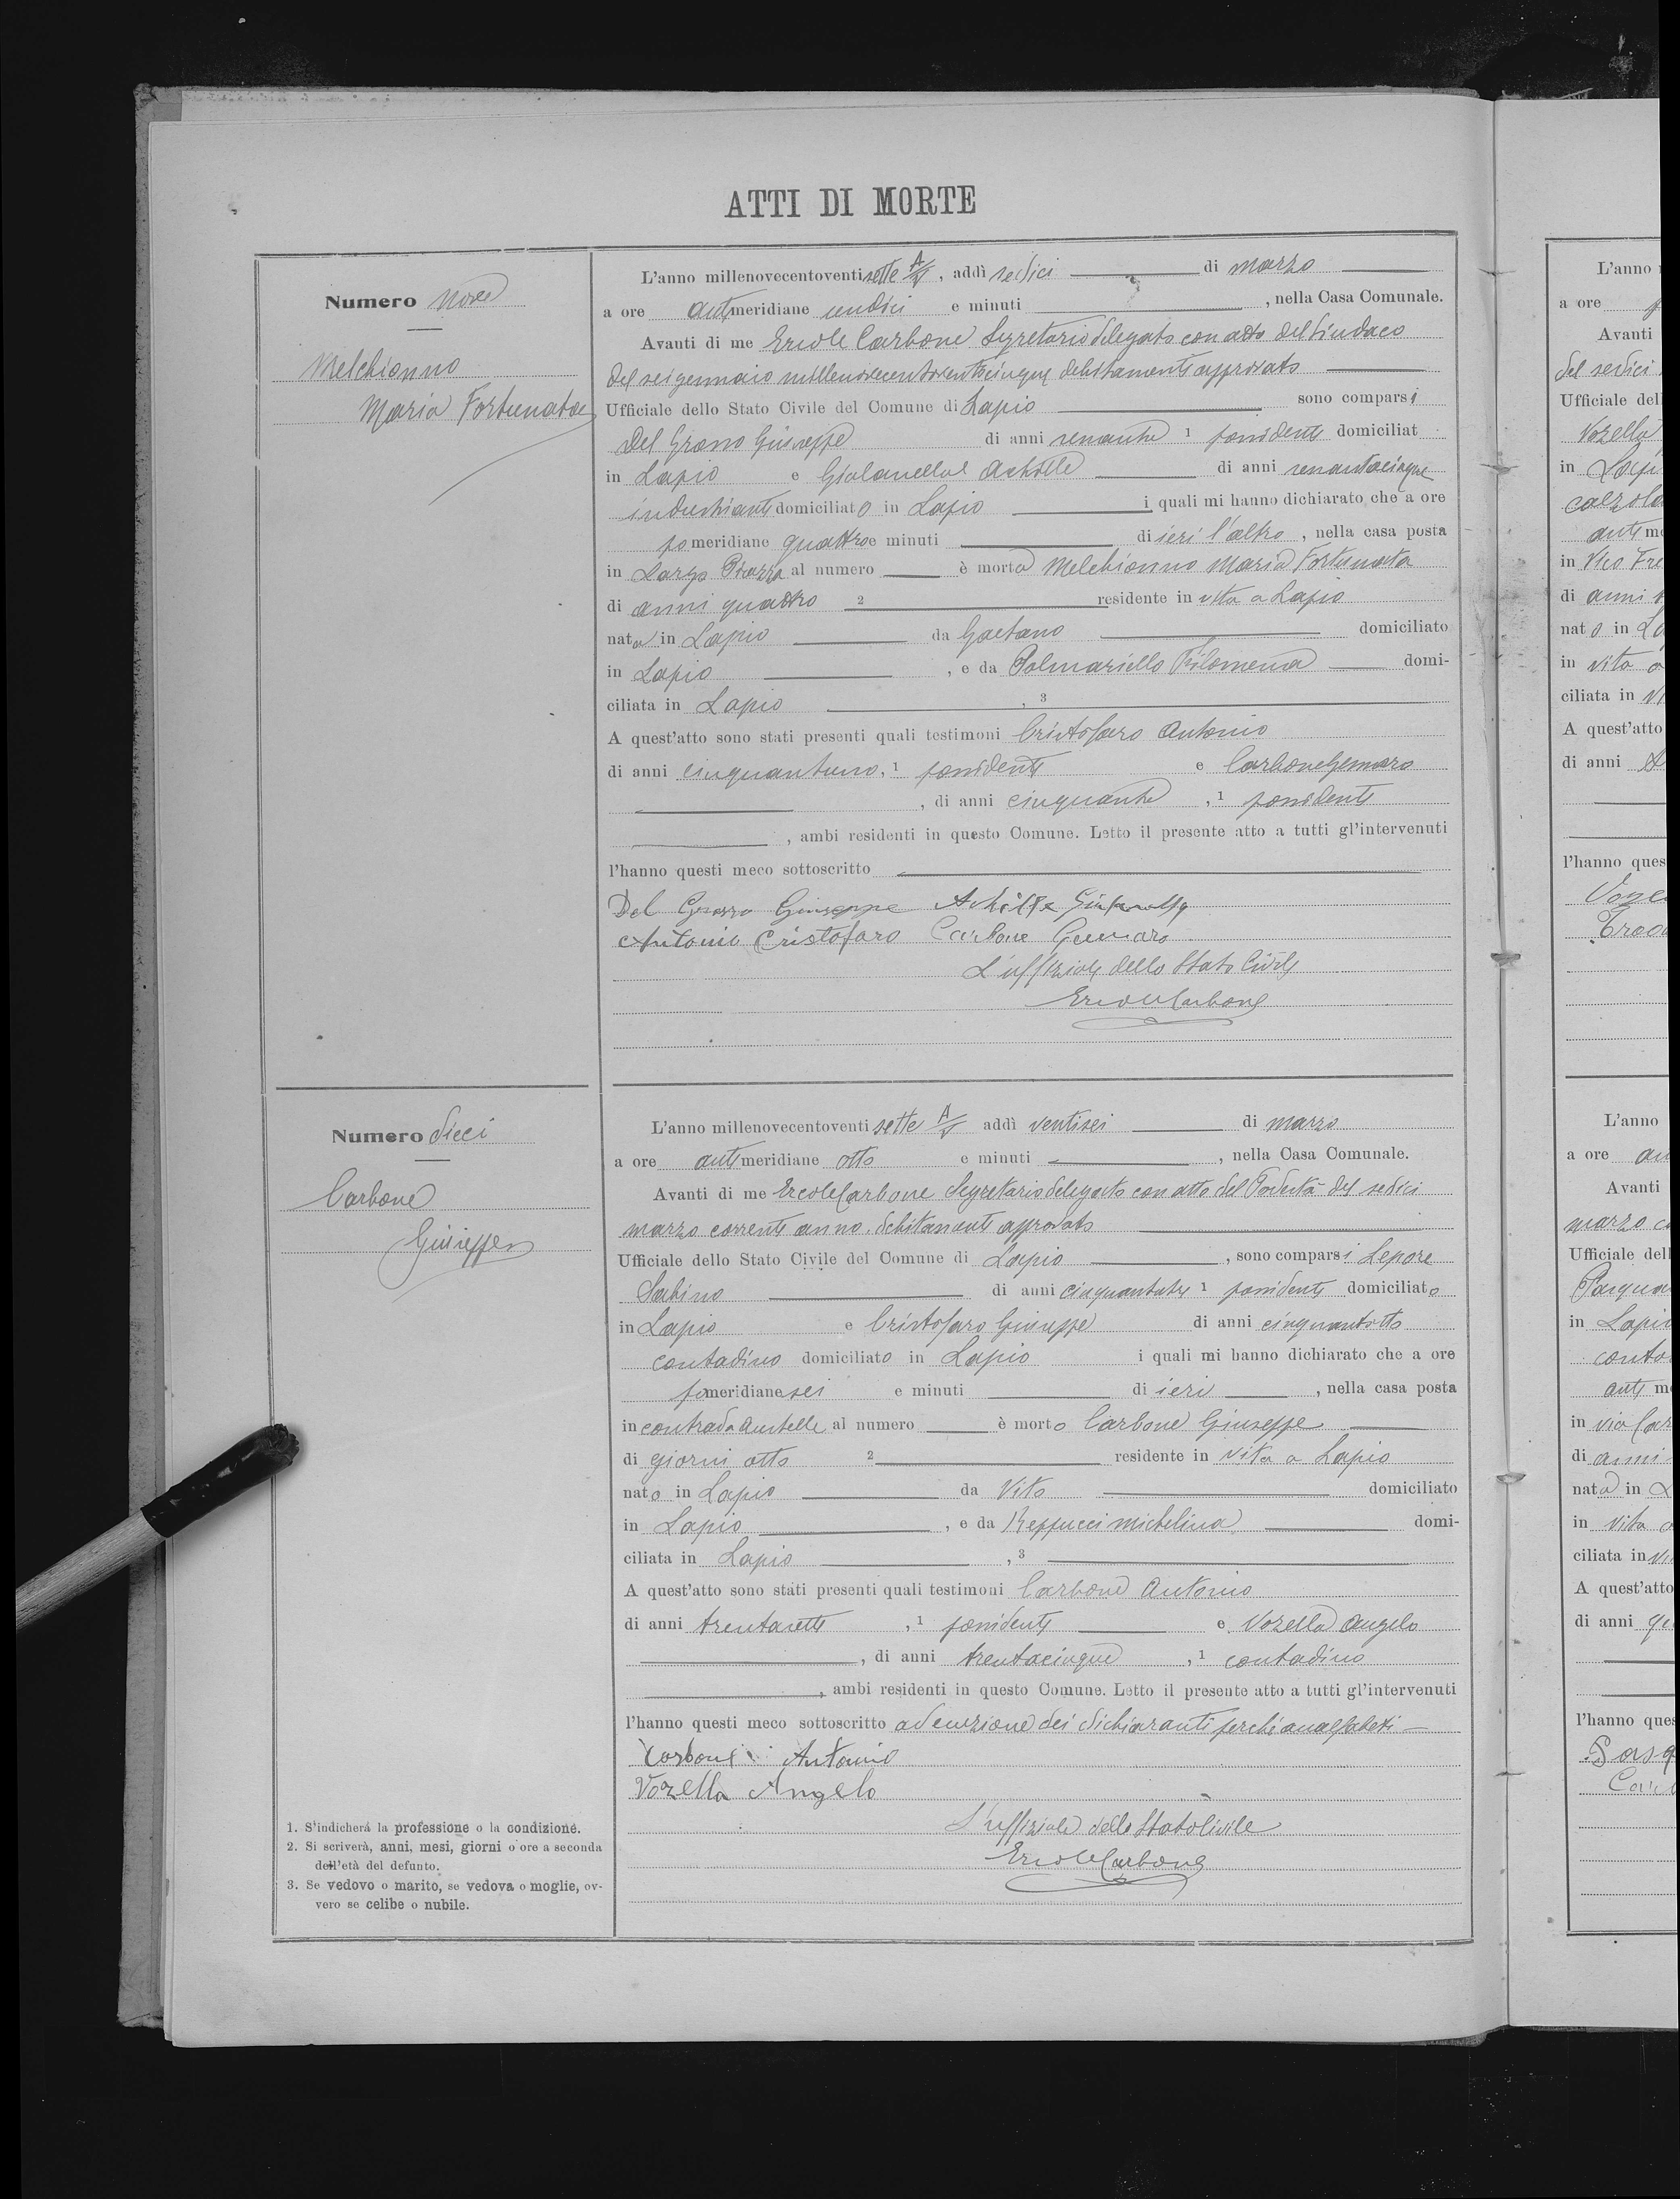 ATTI DI MORTE
Numero Nove
Melchionno
Maria Fortunata
L'anno millenovecentoventisette A/V, addì sedici di marzo
a ore antimeridiane undici e minuti , nella Casa Comunale.
Avanti di me Ercole Carbone Segretario delegato con atto del Sindaco
del sei gennaio debitamente approvato
Ufficiale dello Stato Civile del Comune di Lapio sono comparsi
Del Grosso Giuseppe di anni 1 possidente domiciliat
in Lapio e Achille di anni
industriante domiciliato in Lapio i quali mi hanno dichiarato che a ore
pomeridiane quattro e minuti di ieri l'altro, nella casa posta
in Largo Piazza al numero è morta Melchionno Maria Fortunata
di anni quattro 2 residente in vita a Lapio
nata in Lapio da Gaetano domiciliato
in Lapio , e da Palmariello Filomena domi-
ciliata in Lapio , 3
A quest'atto sono stati presenti quali testimoni Cristofaro Antonio
di anni cinquantuno, 1 possidente e Carbone Gennaro
, di anni , 1 possidente
, ambi residenti in questo Comune. Letto il presente atto a tutti gl'intervenuti
l'hanno questi meco sottoscritto
Del Grosso Giuseppe Achille
Antonio Cristofaro Carbone Gennaro
L'uffiziale dello Stato Civile
Ercole Carbone
Numero dieci
Carbone
Giuseppe
L'anno millenovecentoventi sette A/V addì ventisei di marzo
a ore antimeridiane otto e minuti , nella Casa Comunale.
Avanti di me Ercole Carbone Segretario delegato con atto del Podestà del sedici
marzo corrente anno debitamente approvato
Ufficiale dello Stato Civile del Comune di Lapio , sono comparsi Lepore
Sabino di anni cinquantatre 1 possidente domiciliato
in Lapio e Cristofaro Giuseppe di anni cinquantotto
contadino domiciliato in Lapio i quali mi hanno dichiarato che a ore
pomeridiane sei e minuti di ieri , nella casa posta
in contrada al numero è morto Carbone Giuseppe
di giorni otto 2 residente in vita a Lapio
nato in Lapio da Vito domiciliato
in Lapio , e da Reppucci Michelina domi-
ciliata in Lapio , 3
A quest'atto sono stati presenti quali testimoni Carbone Antonio
di anni trentasette , 1 possidente e Vozella Angelo
, di anni trentacinque , 1 contadino
, ambi residenti in questo Comune. Letto il presente atto a tutti gl'intervenuti
l'hanno questi meco sottoscritto ad eccezione dei dichiaranti perchè analfabeti
Carbone Antonio
Vozella Angelo
L'uffiziale dello Stato Civile
Ercole Carbone
1. S'indicherà la professione o la condizione.
2. Si scriverà, anni, mesi, giorni o ore a seconda
dell'età del defunto.
3. Se vedovo o marito, se vedova o moglie, ov-
vero se celibe o nubile.
L'anno
a ore
Avanti
del sedici
Ufficiale del
Vozella
in Lapi
antime
in Vico
di anni
nato in
in vita
ciliata in
A quest'atto
di anni
l'hanno ques
L'anno
a ore
Avanti
marzo
Ufficiale dell
in Lapio
antim
in via
di anni
nata in
in vita
ciliata in
A quest'atto
di anni
l'hanno ques